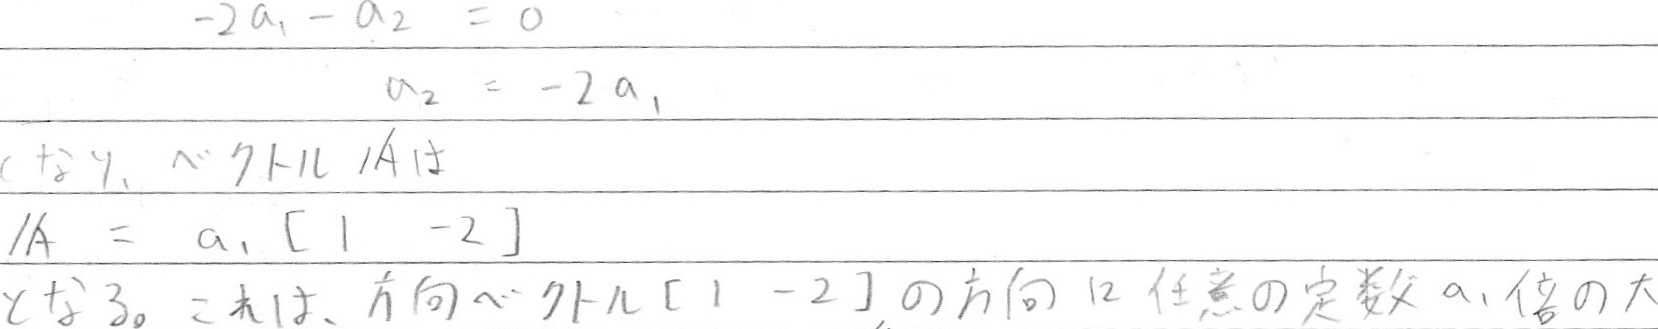 -2a₁ - a₂ = 0
a₂ = -2a₁
となり、ベクトル𝔸は
𝔸 = a₁ [ 1 -2 ]
となる。これは、方向ベクトル [ 1 -2 ] の方向に任意の定数 a₁ 倍の大